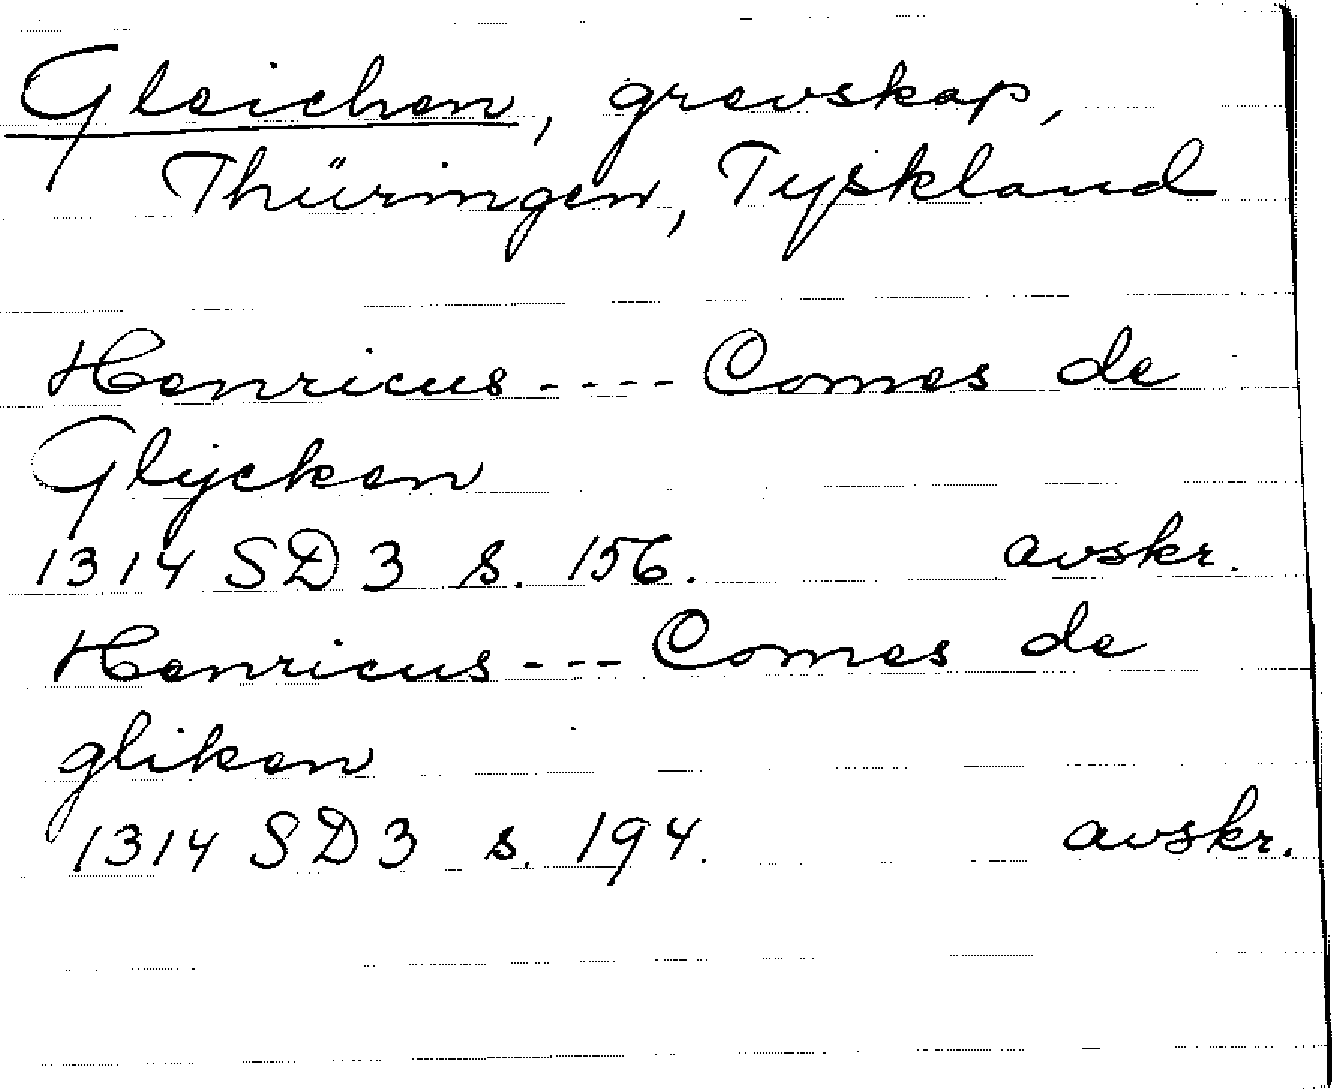 Gleichen, grevskap,
Thüringen, Tyskland
Henricus ---- Comes de
Glycken
1314 SD 3 s. 156. avskr.
Henricus --- Comes de
gliken
1314 SD 3 s. 194. avskr.